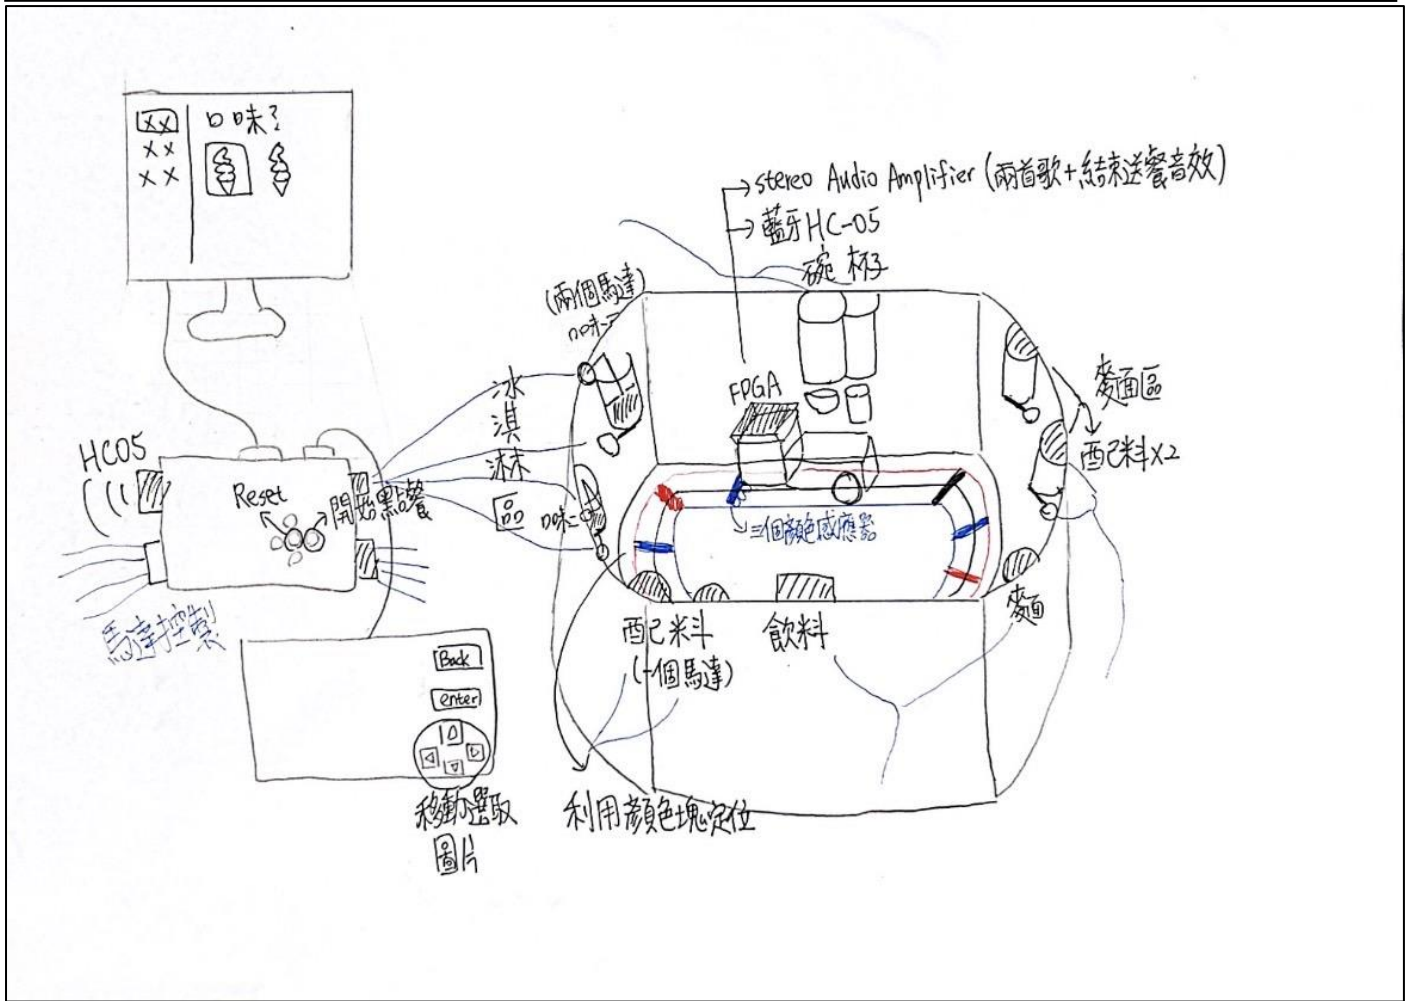 XX
XX
XX
口味?
stereo Audio Amplifier (兩首歌+結束送餐音效)
藍牙HC-05
碗 杯子
(兩個馬達)
口味一
冰淇淋區
口味二
FPGA
三個顏色感應器
麵區
配料X2
麵
HC05
Reset
開始點餐
馬達控製
配料
(一個馬達)
飲料
Back
enter
移動選取
圖片
利用顏色塊定位